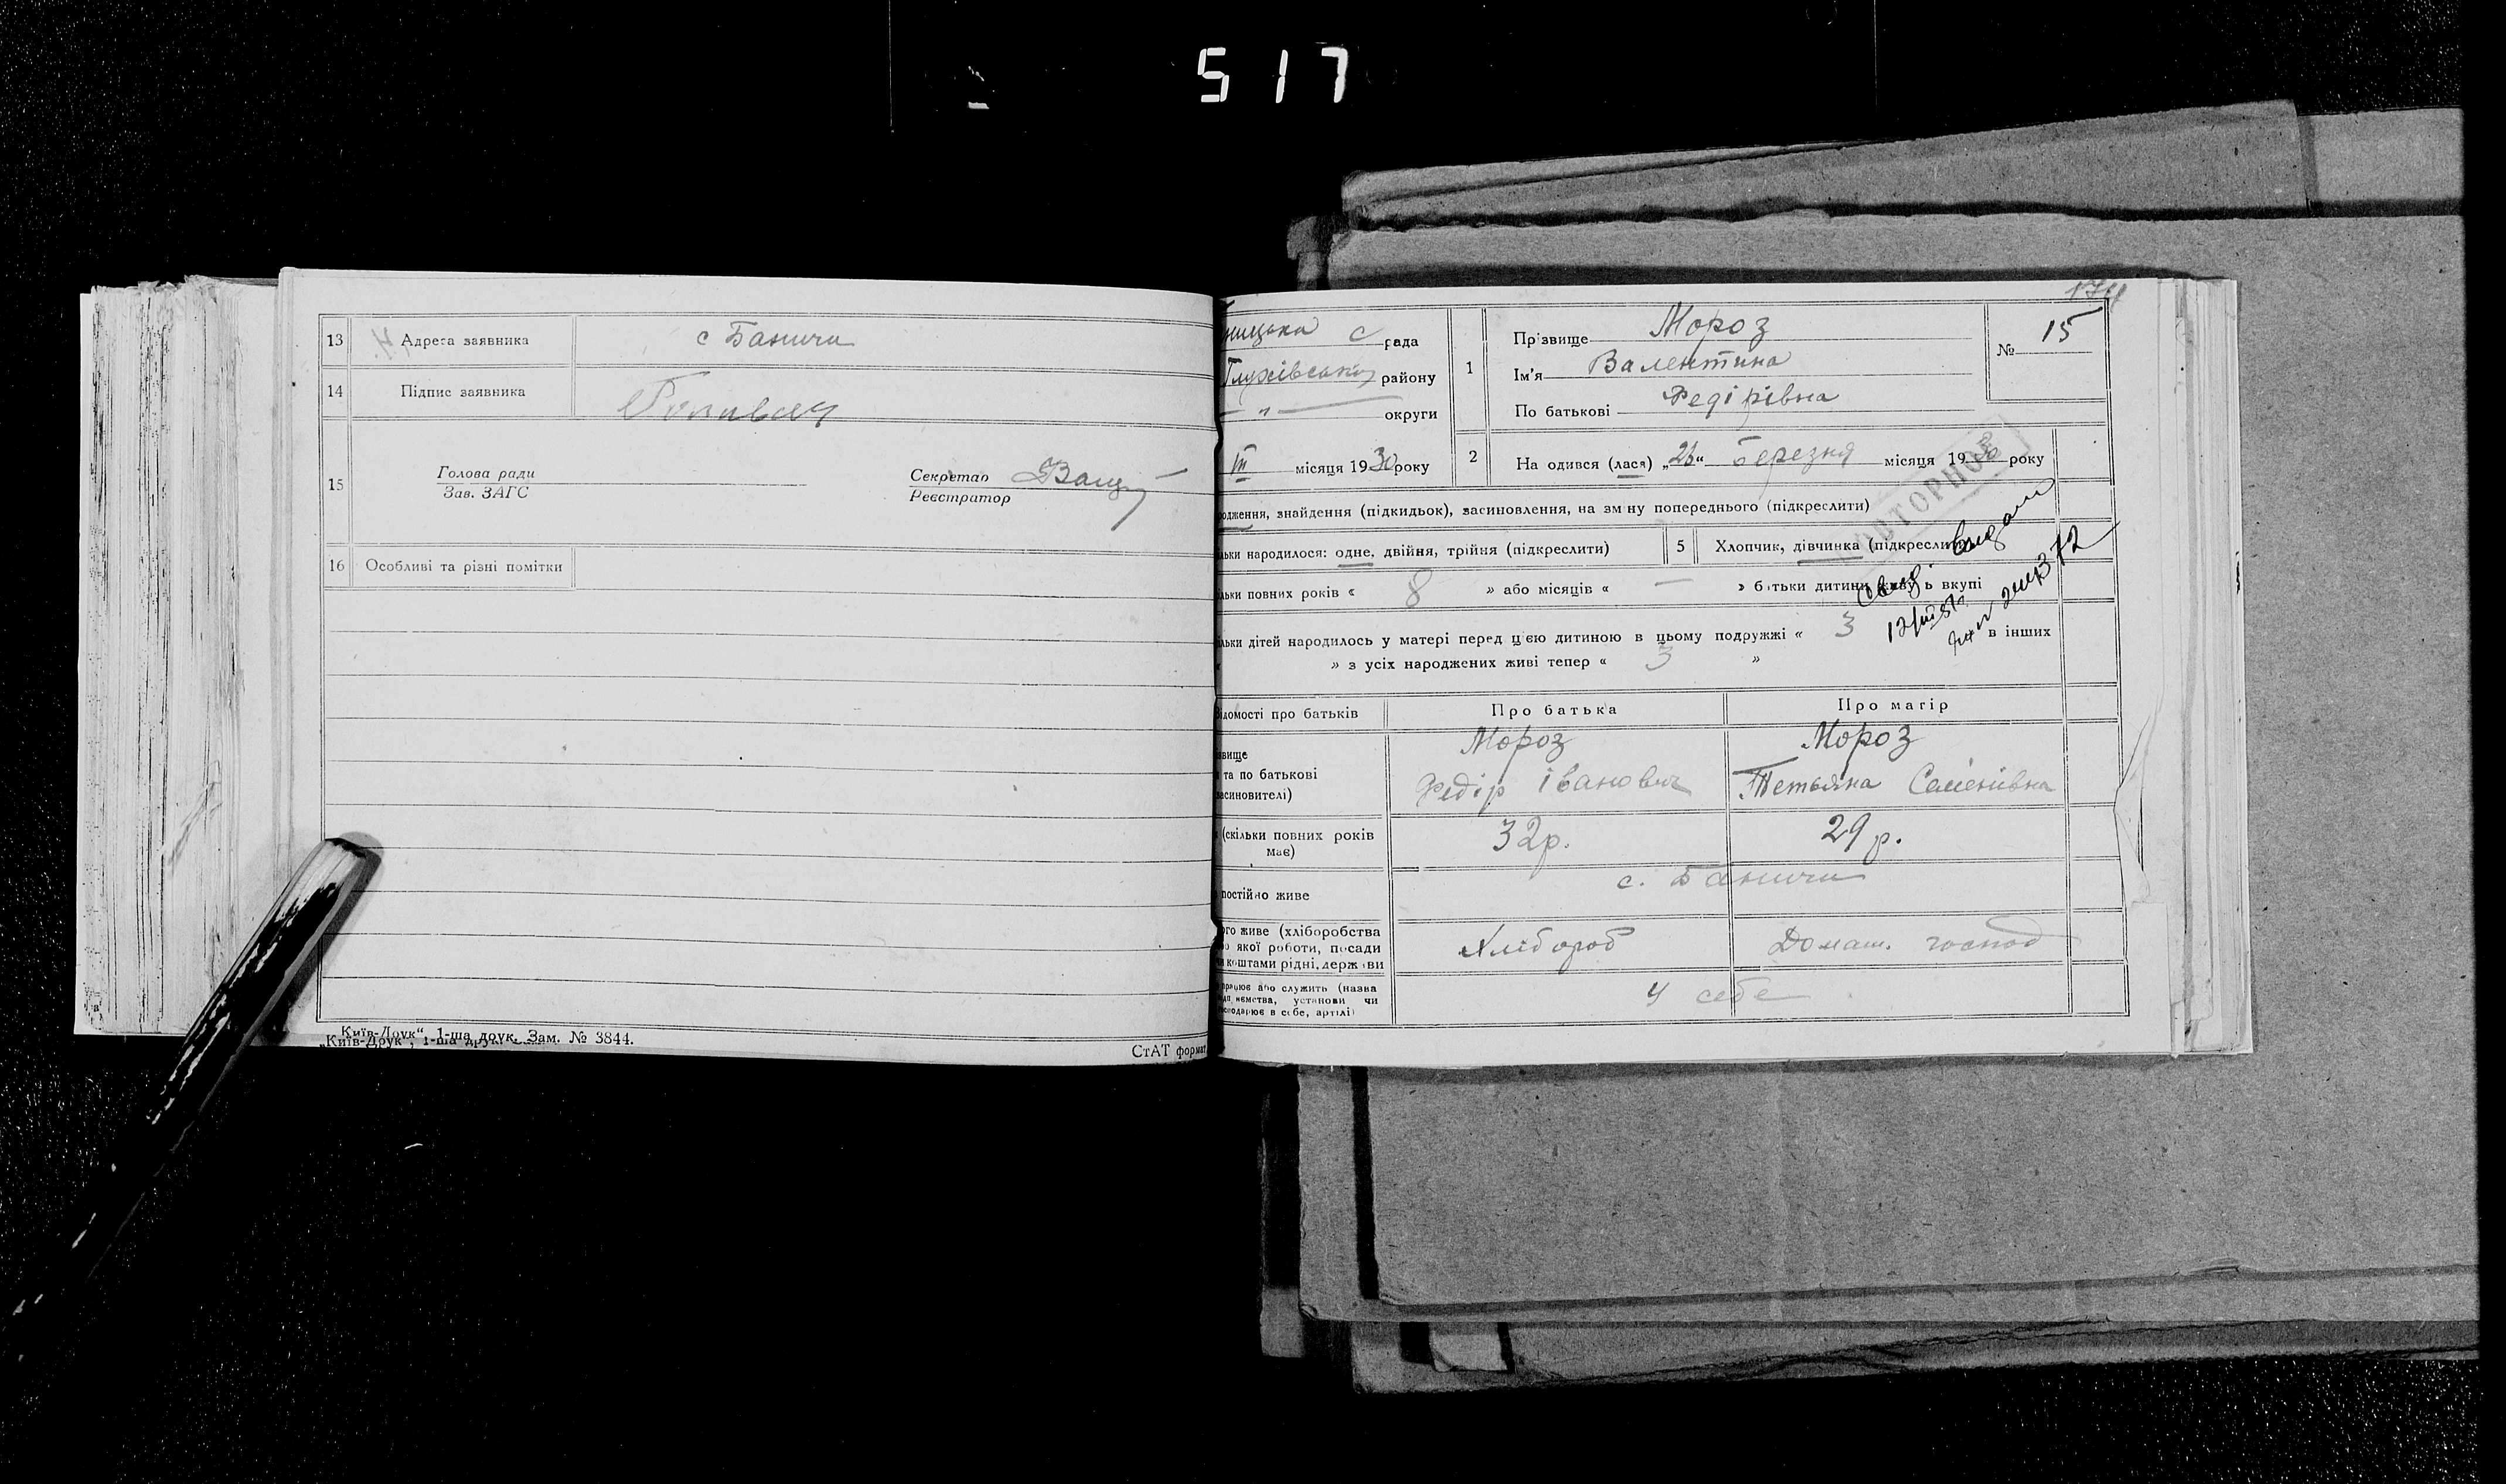 517
13 Адреса заявника с Баничи
14 Підпис заявника
15 Голова ради Секретар
Зав. ЗАГС Реєстратор
16 Особливі та різні помітки
„Київ-Друк“, 1-ша друк. Зам. № 3844.
СтАТ формат
174
ницька с рада
Глухівський району
— „ — округи
III місяця 1930 року
1 Прізвище Мороз
Ім'я Валентина
По батькові Федірівна
№ 15
2 На одився (лася) „26“ Березня місяця 1930 року
ПОВТОРНОЕ
одження, знайдення (підкидьок), засиновлення, на зміну попереднього (підкреслити)
льки народилося: одне, двійня, трійня (підкреслити) 5 Хлопчик, дівчинка (підкреслити)
льки повних років « 8 » або місяців « — » батьки дитини живуть вкупі
льки дітей народилось у матері перед цією дитиною в цьому подружжі « 3 в інших
» з усіх народжених живі тепер « 3 »
ідомості про батьків Про батька Про матір
звище Мороз Мороз
та по батькові Федір Іванович Тетьяна Семенівна
асиновителі)
(скільки повних років має) 32р. 29р.
постійно живе с. Баничи
ого живе (хліборобства
о якої роботи, посади Хлібороб Домаш. господ
коштами рідні, держави
працює або служить (назва
ємства, установи чи у себе
сподарює в себе, артілі)